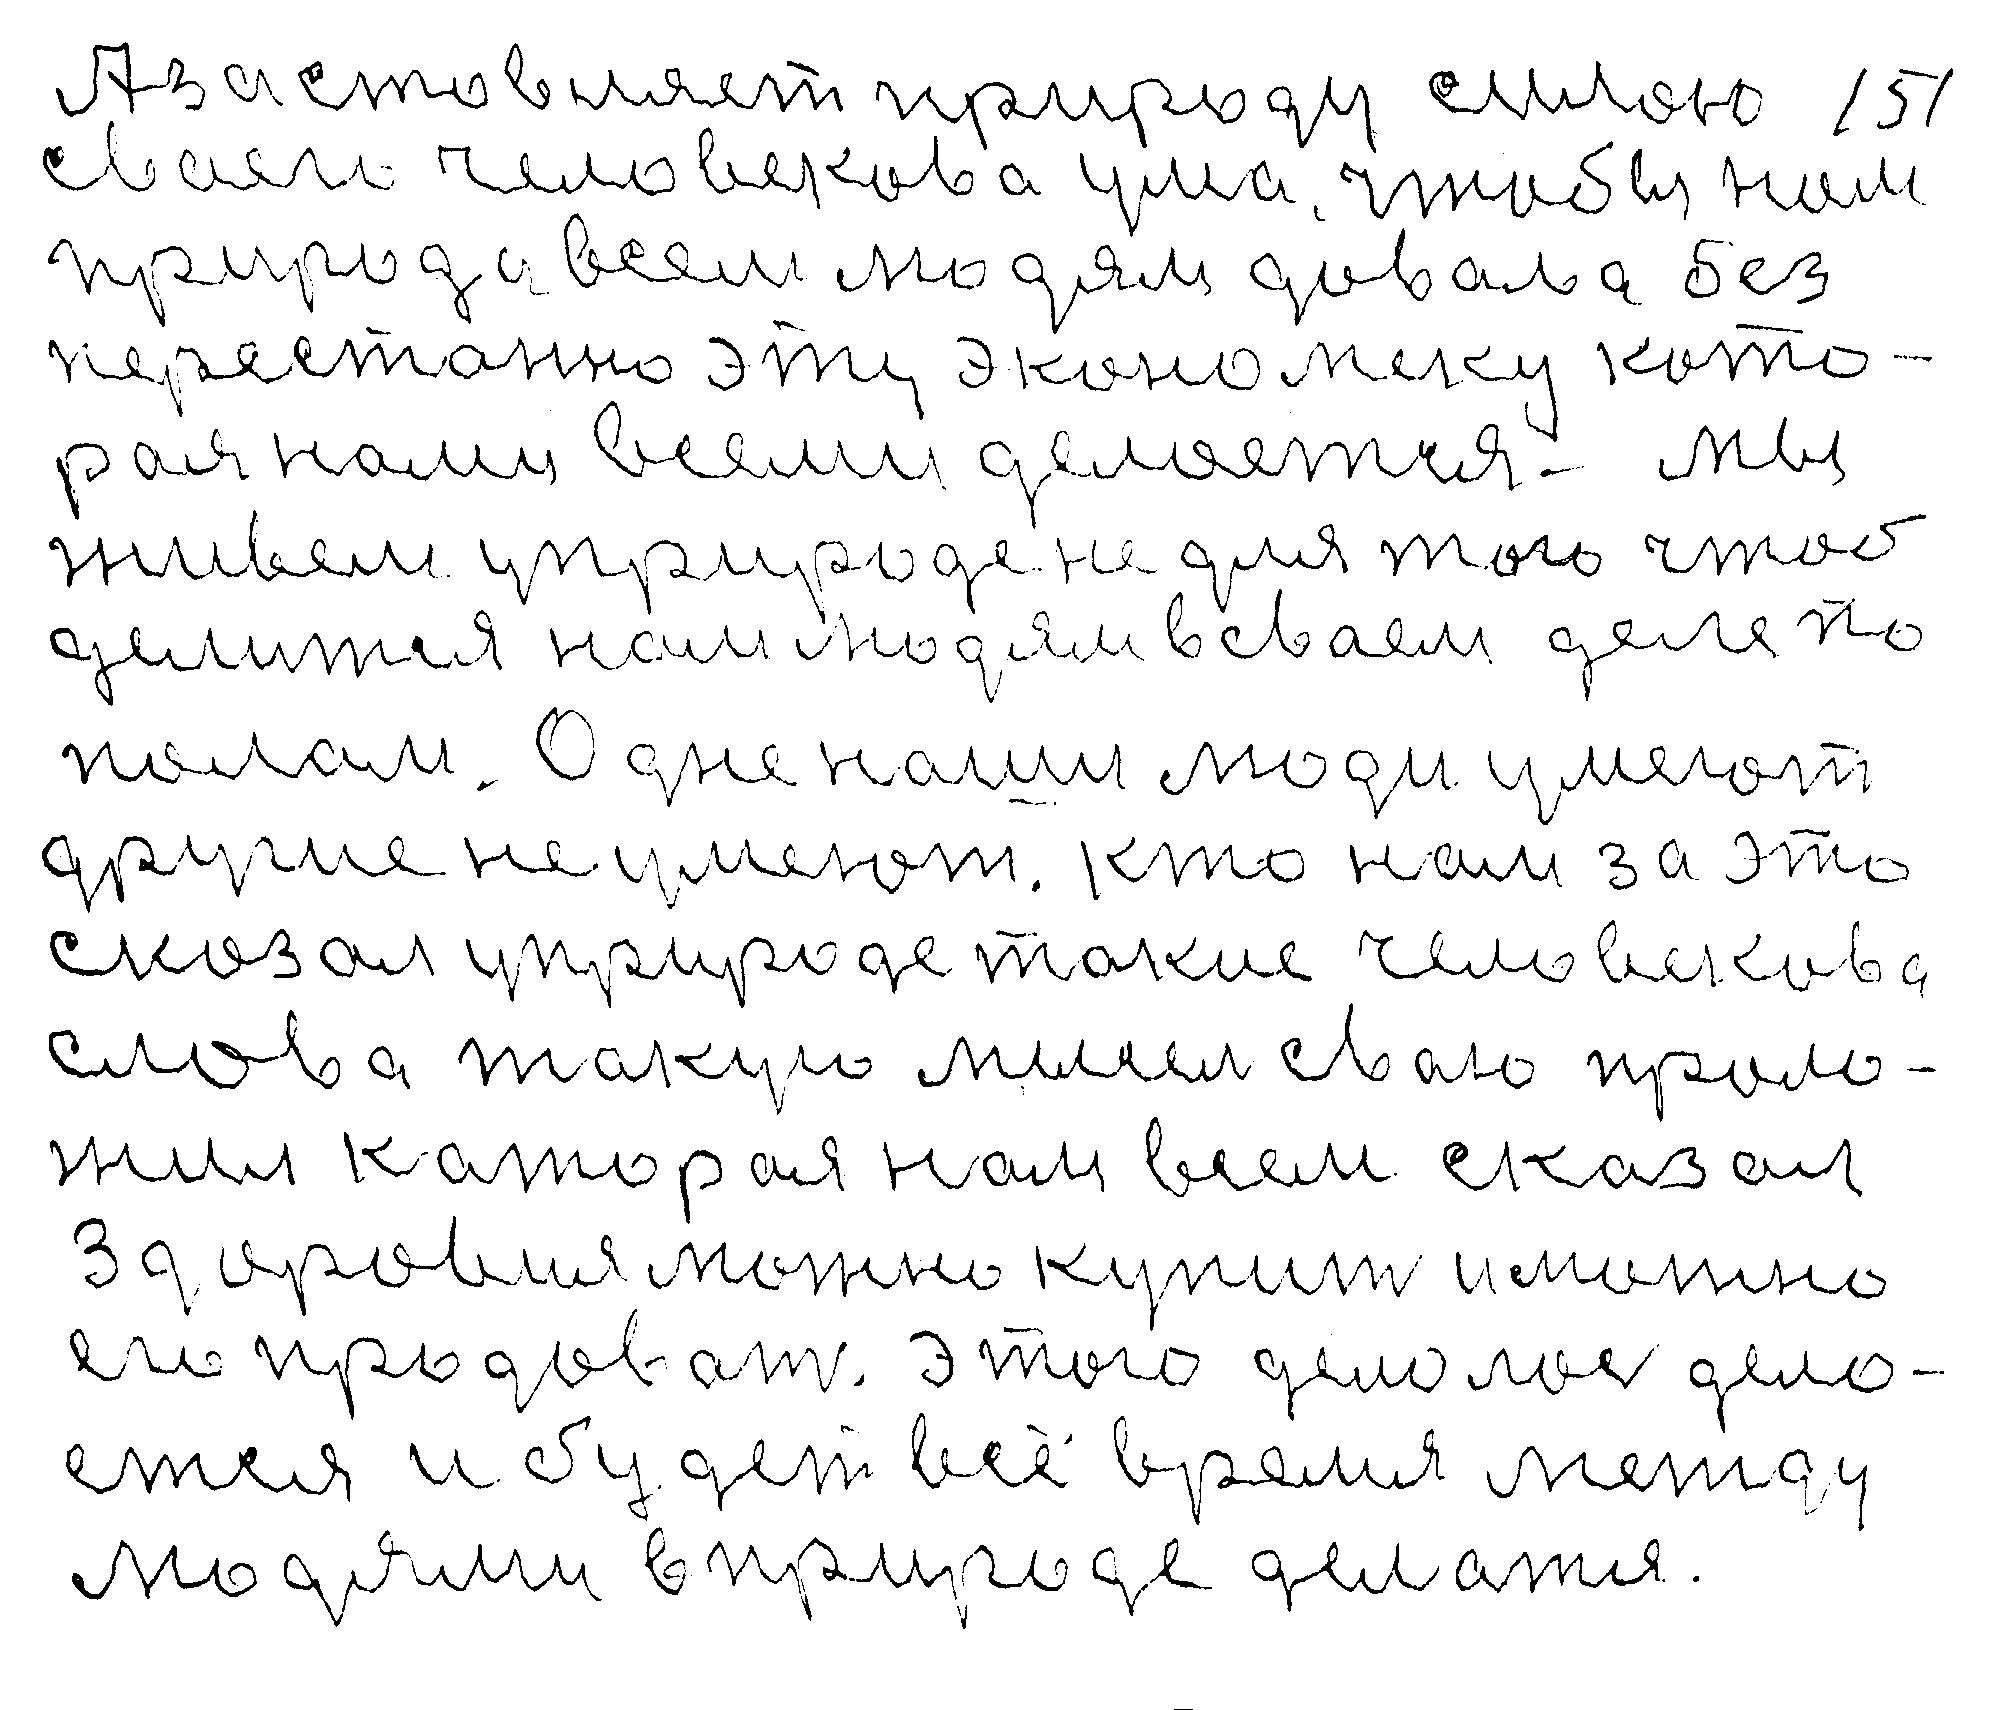 А застовляет природу силою 151
сваею человекова ума, чтобы нам
природа всем людям довала без
перестанно эту экономеку кото-
рая нами всеми делоется - мы
живем у природе не для того чтоб
делится нам людям в сваем деле по
полам. Одне наши люди умеют
другие не умеют. Кто нам за это
сказал у природе такие человекова
слова такую мысел сваю проло-
жил каторая нам всем сказал
Здоровия можно купит и можно
его продоват. Этого дело лос дело-
ется и будет всё время между
людями в природе делатся.